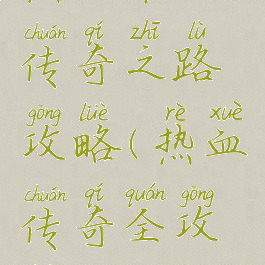 chuán qí zhī lù
传奇之路
gōng lüè rè xuè
攻略(热血
chuán qí quán gōng
传奇全攻